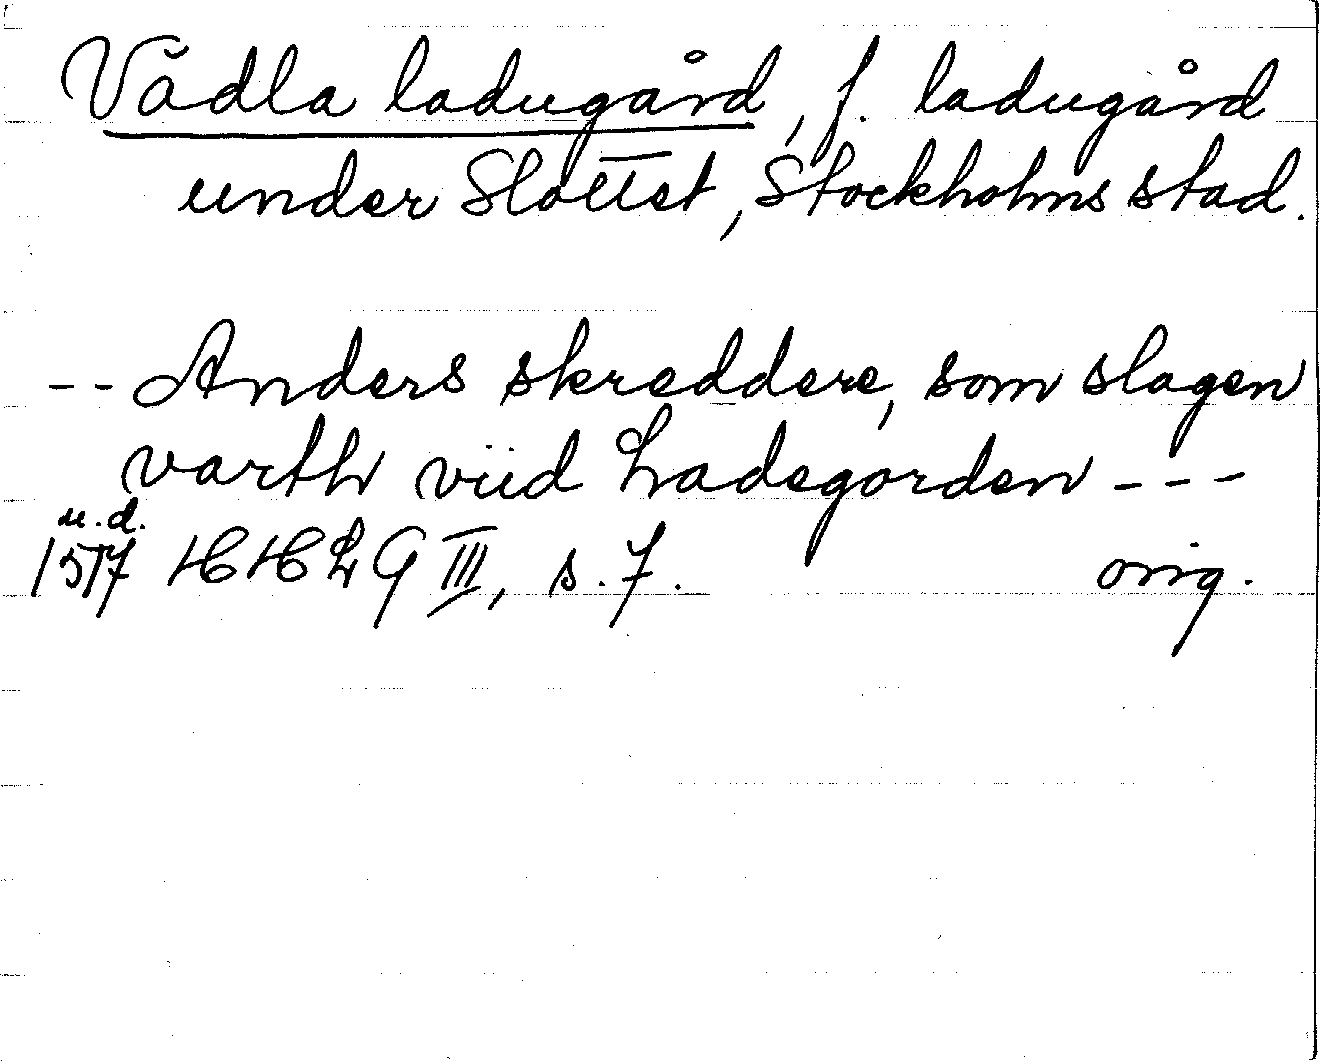 Vädla ladugård, f. ladugård
under Slottet, Stockholms stad.
-- Anders skreddere, som slagen
varth viid Ladegorden ---
u.d.
1517 HHLG III, s. 7. orig.